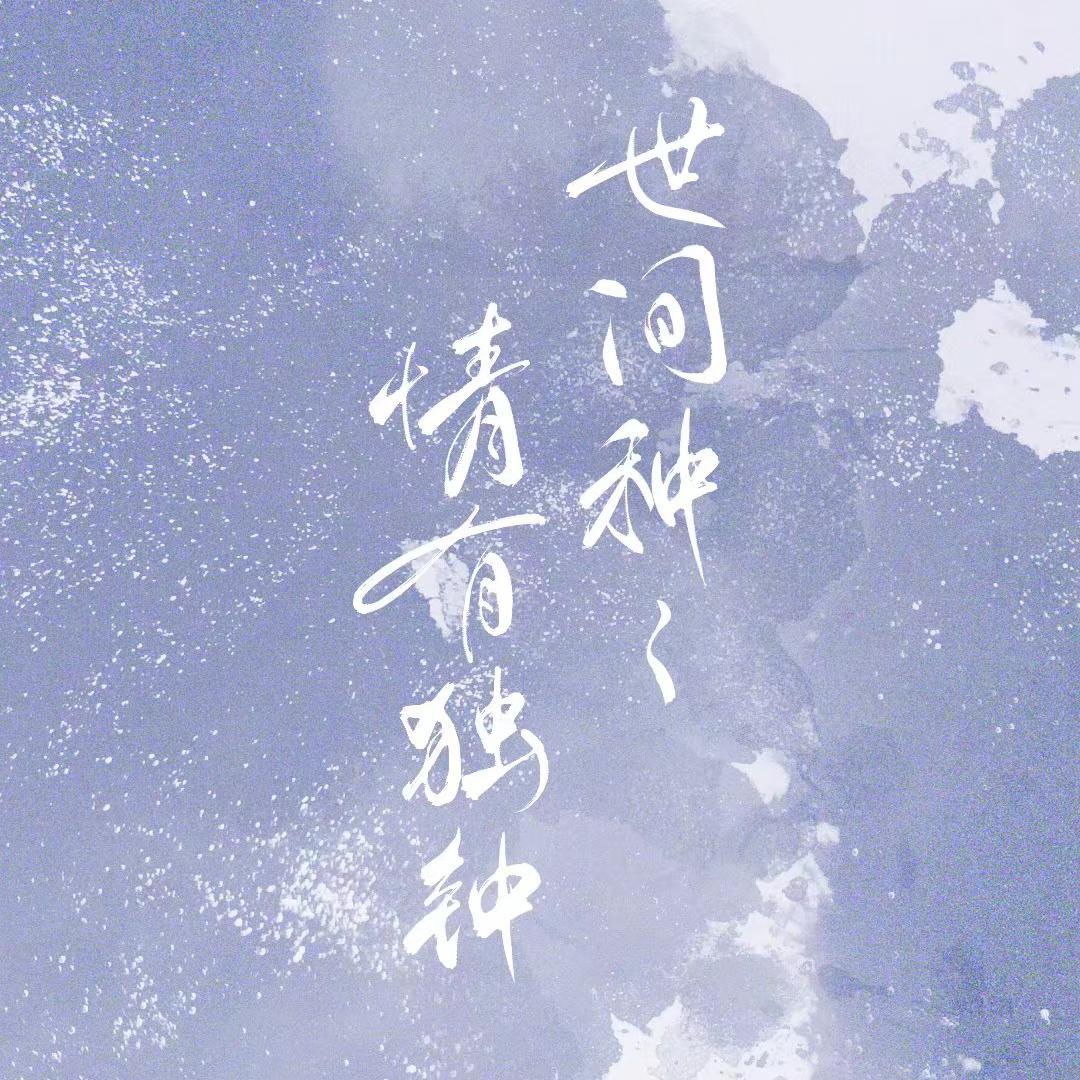 世间种々
情有独钟